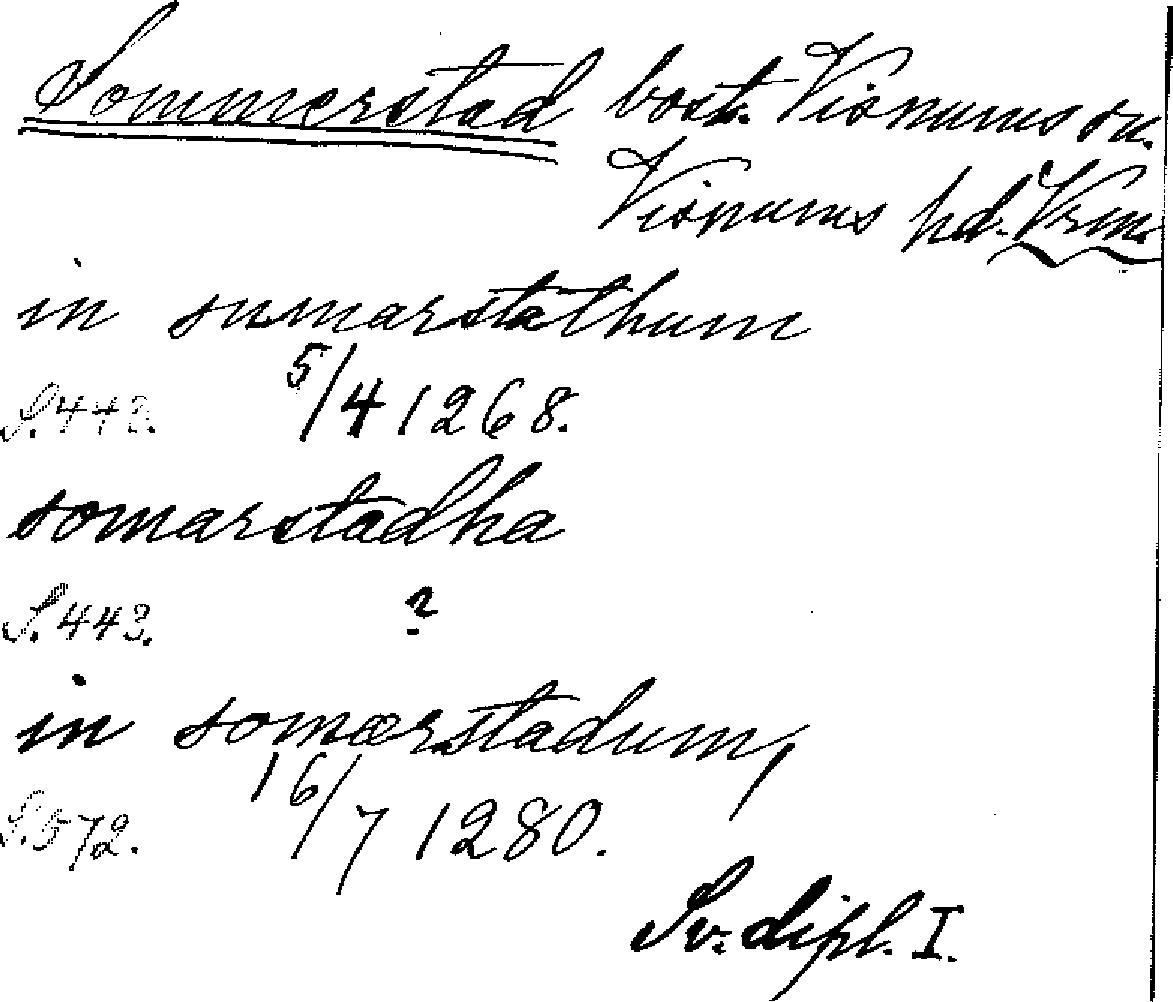 Sommerstad bost. Visnums sn.
Visnums hd. Vrm.
in sumarstathum
S. 442. 5/4 1268.
somarstadha
S. 443. ?
in somærstadum,
S. 572. 16/7 1280.
Sv. dipl. I.